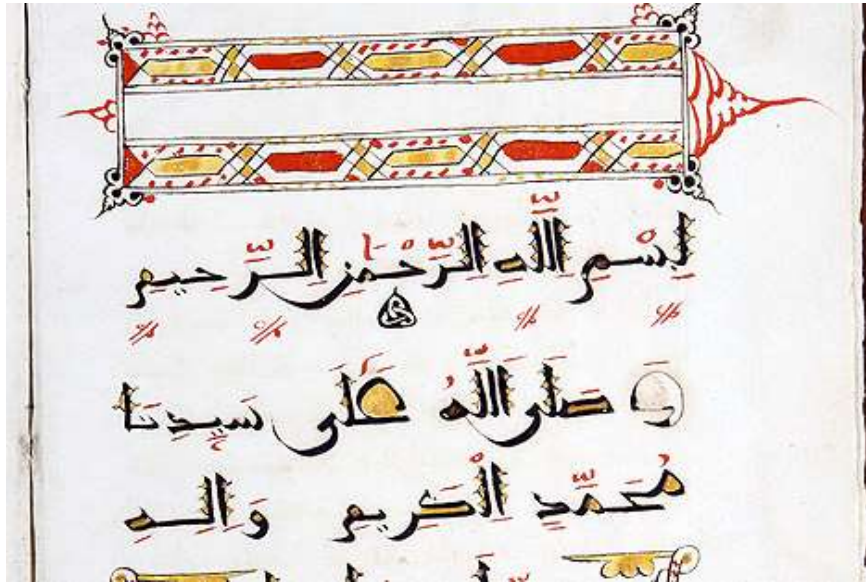 بِسْمِ اللَّهِ الرَّحْمٰنِ الرَّحِيمِ
وَ صَلَّى اللَّهُ عَلَى سَيِّدِنَا
مُحَمَّدٍ الْكَرِيمِ وَالِهِ